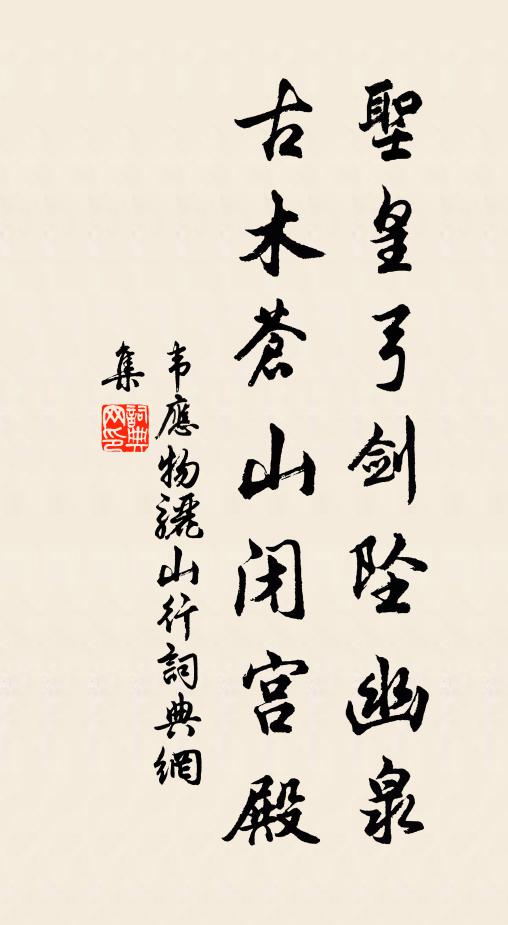 聖皇弓劍坠幽泉
古木蒼山闭宫殿
韦應物驪山行詞典網
集
詞典
网印